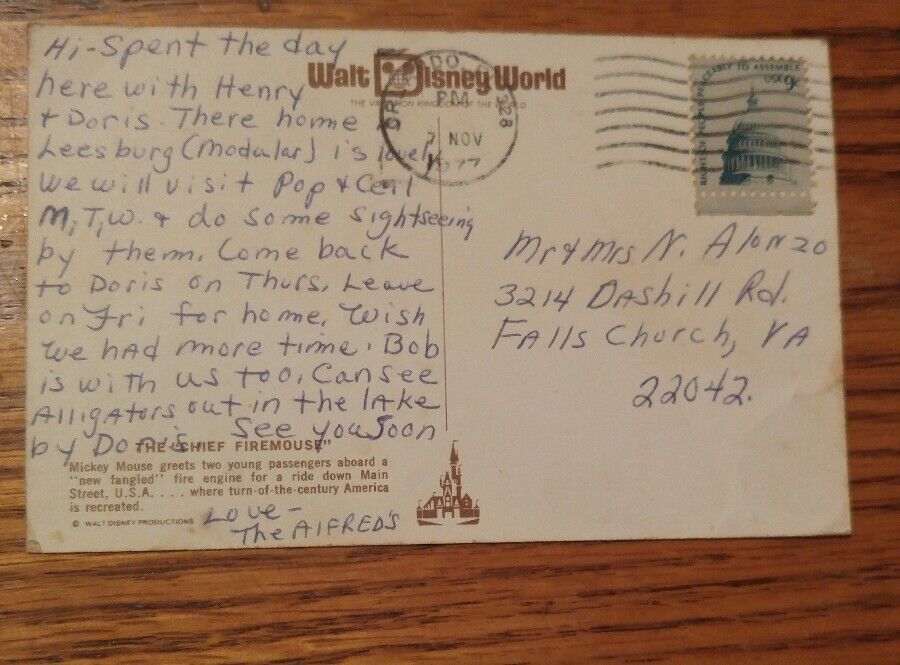 Hi-Spent the day
here with Henry
+ Doris. There home
Leesburg (Modular) is lovely
We will visit Pop + Ceil
M,T,W. + do some sightseeing
by them. Come back
to Doris on Thurs. Leave
on Fri for home. Wish
we had more time. Bob
is with us too. Can see
Alligators out in the lake
by Doris. See you soon
Love-
The Alfred's
Walt Disney World
THE VACATION KINGDOM OF THE WORLD
PM
7 NOV
1977
328
TO ASSEMBLE
USA 9c
Mr + Mrs N. Alonzo
3214 Dashill Rd.
Falls Church, VA
22042.
THE "CHIEF FIREMOUSE"
Mickey Mouse greets two young passengers aboard a
"new fangled" fire engine for a ride down Main
Street, U.S.A. . . . . where turn-of-the-century America
is recreated.
© WALT DISNEY PRODUCTIONS